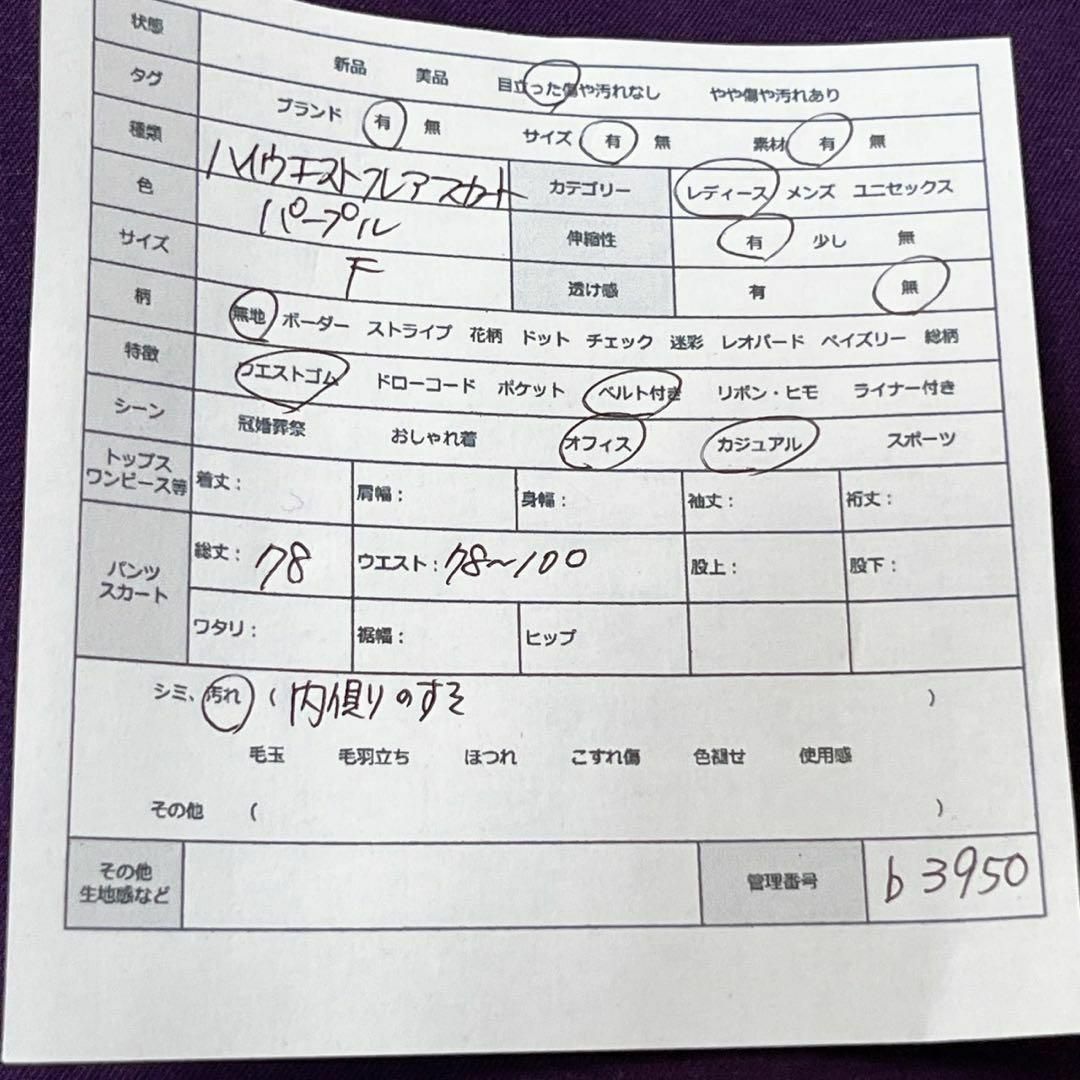 状態 新品 美品 目立った傷や汚れなし やや傷や汚れあり
タグ ブランド 有 無 サイズ 有 無 素材 有 無
種類 ハイウエストフレアスカート カテゴリー レディース メンズ ユニセックス
色 パープル 伸縮性 有 少し 無
サイズ F 透け感 有 無
柄 無地 ボーダー ストライプ 花柄 ドット チェック 迷彩 レオパード ペイズリー 総柄
特徴 ウエストゴム ドローコード ポケット ベルト付き リボン・ヒモ ライナー付き
シーン 冠婚葬祭 おしゃれ着 オフィス カジュアル スポーツ
トップス
ワンピース等 着丈: 肩幅: 身幅: 袖丈: 裄丈:
パンツ
スカート 総丈: 78 ウエスト: 78~100 股上: 股下:
ワタリ: 裾幅: ヒップ
シミ、汚れ ( 内側りのすそ )
毛玉 毛羽立ち ほつれ こすれ傷 色褪せ 使用感
その他 ( )
その他
生地感など 管理番号 b3950